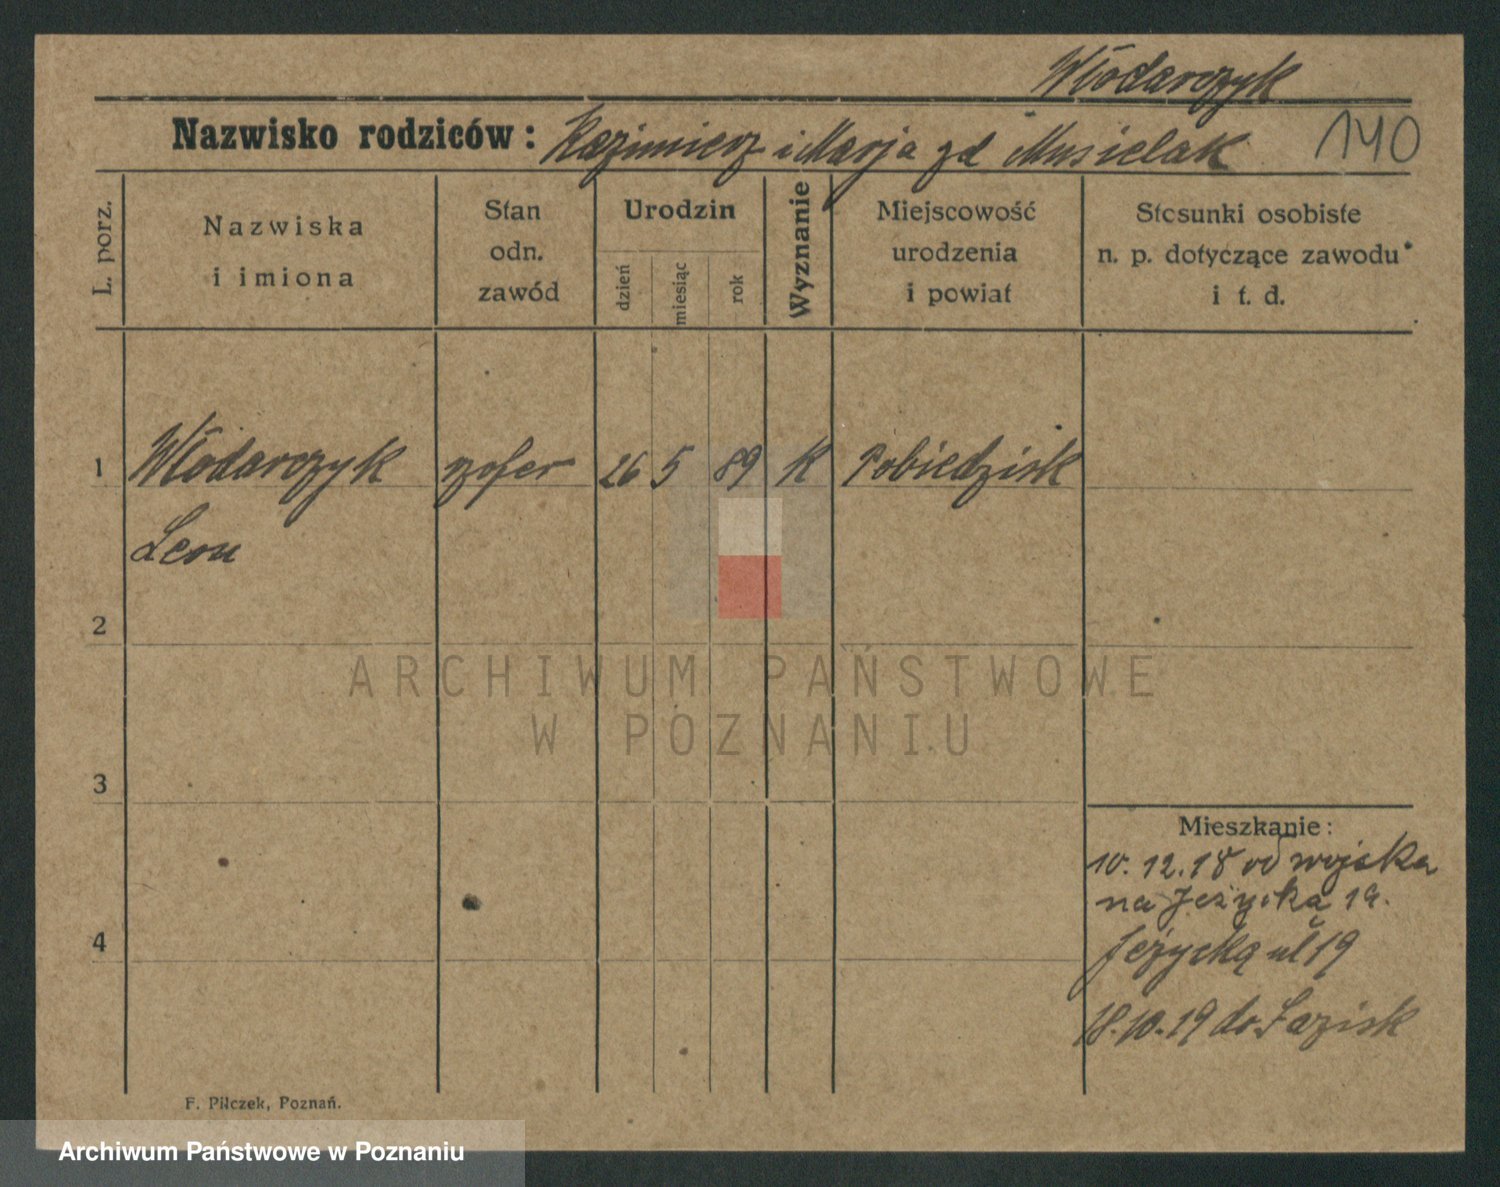 Włodarczyk
Nazwisko rodziców: Kazimierz i Marja zd Musielak 140
L. porz.
Nazwiska
i imiona
Stan
odn.
zawód
Urodzin
dzień
miesiąc
rok
Wyznanie
Miejscowość
urodzenia
i powiat
Stosunki osobiste
n. p. dotyczące zawodu
i t. d.
1 Włodarczyk szofer 26 5 89 K Pobiedzisk
Leon
2
ARCHIWUM PAŃSTWOWE
W POZNANIU
3
Mieszkanie:
10.12.18 od wojska
na Jeżycką 19.
4
Jeżycką ul 19
18.10.19 do Łazisk
F. Pilczek, Poznań.
Archiwum Państwowe w Poznaniu